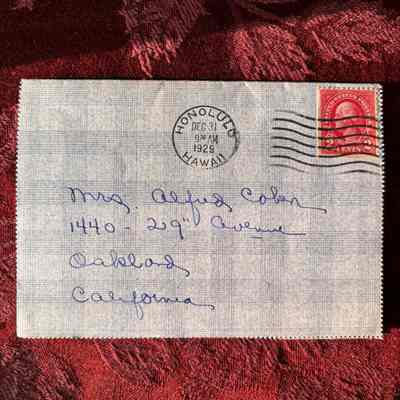 HONOLULU
DEC 31
9 AM
1929
HAWAII
2 CENTS 2
Mrs. Alfred Cohn
1440 - 29" Avenue
Oakland
California